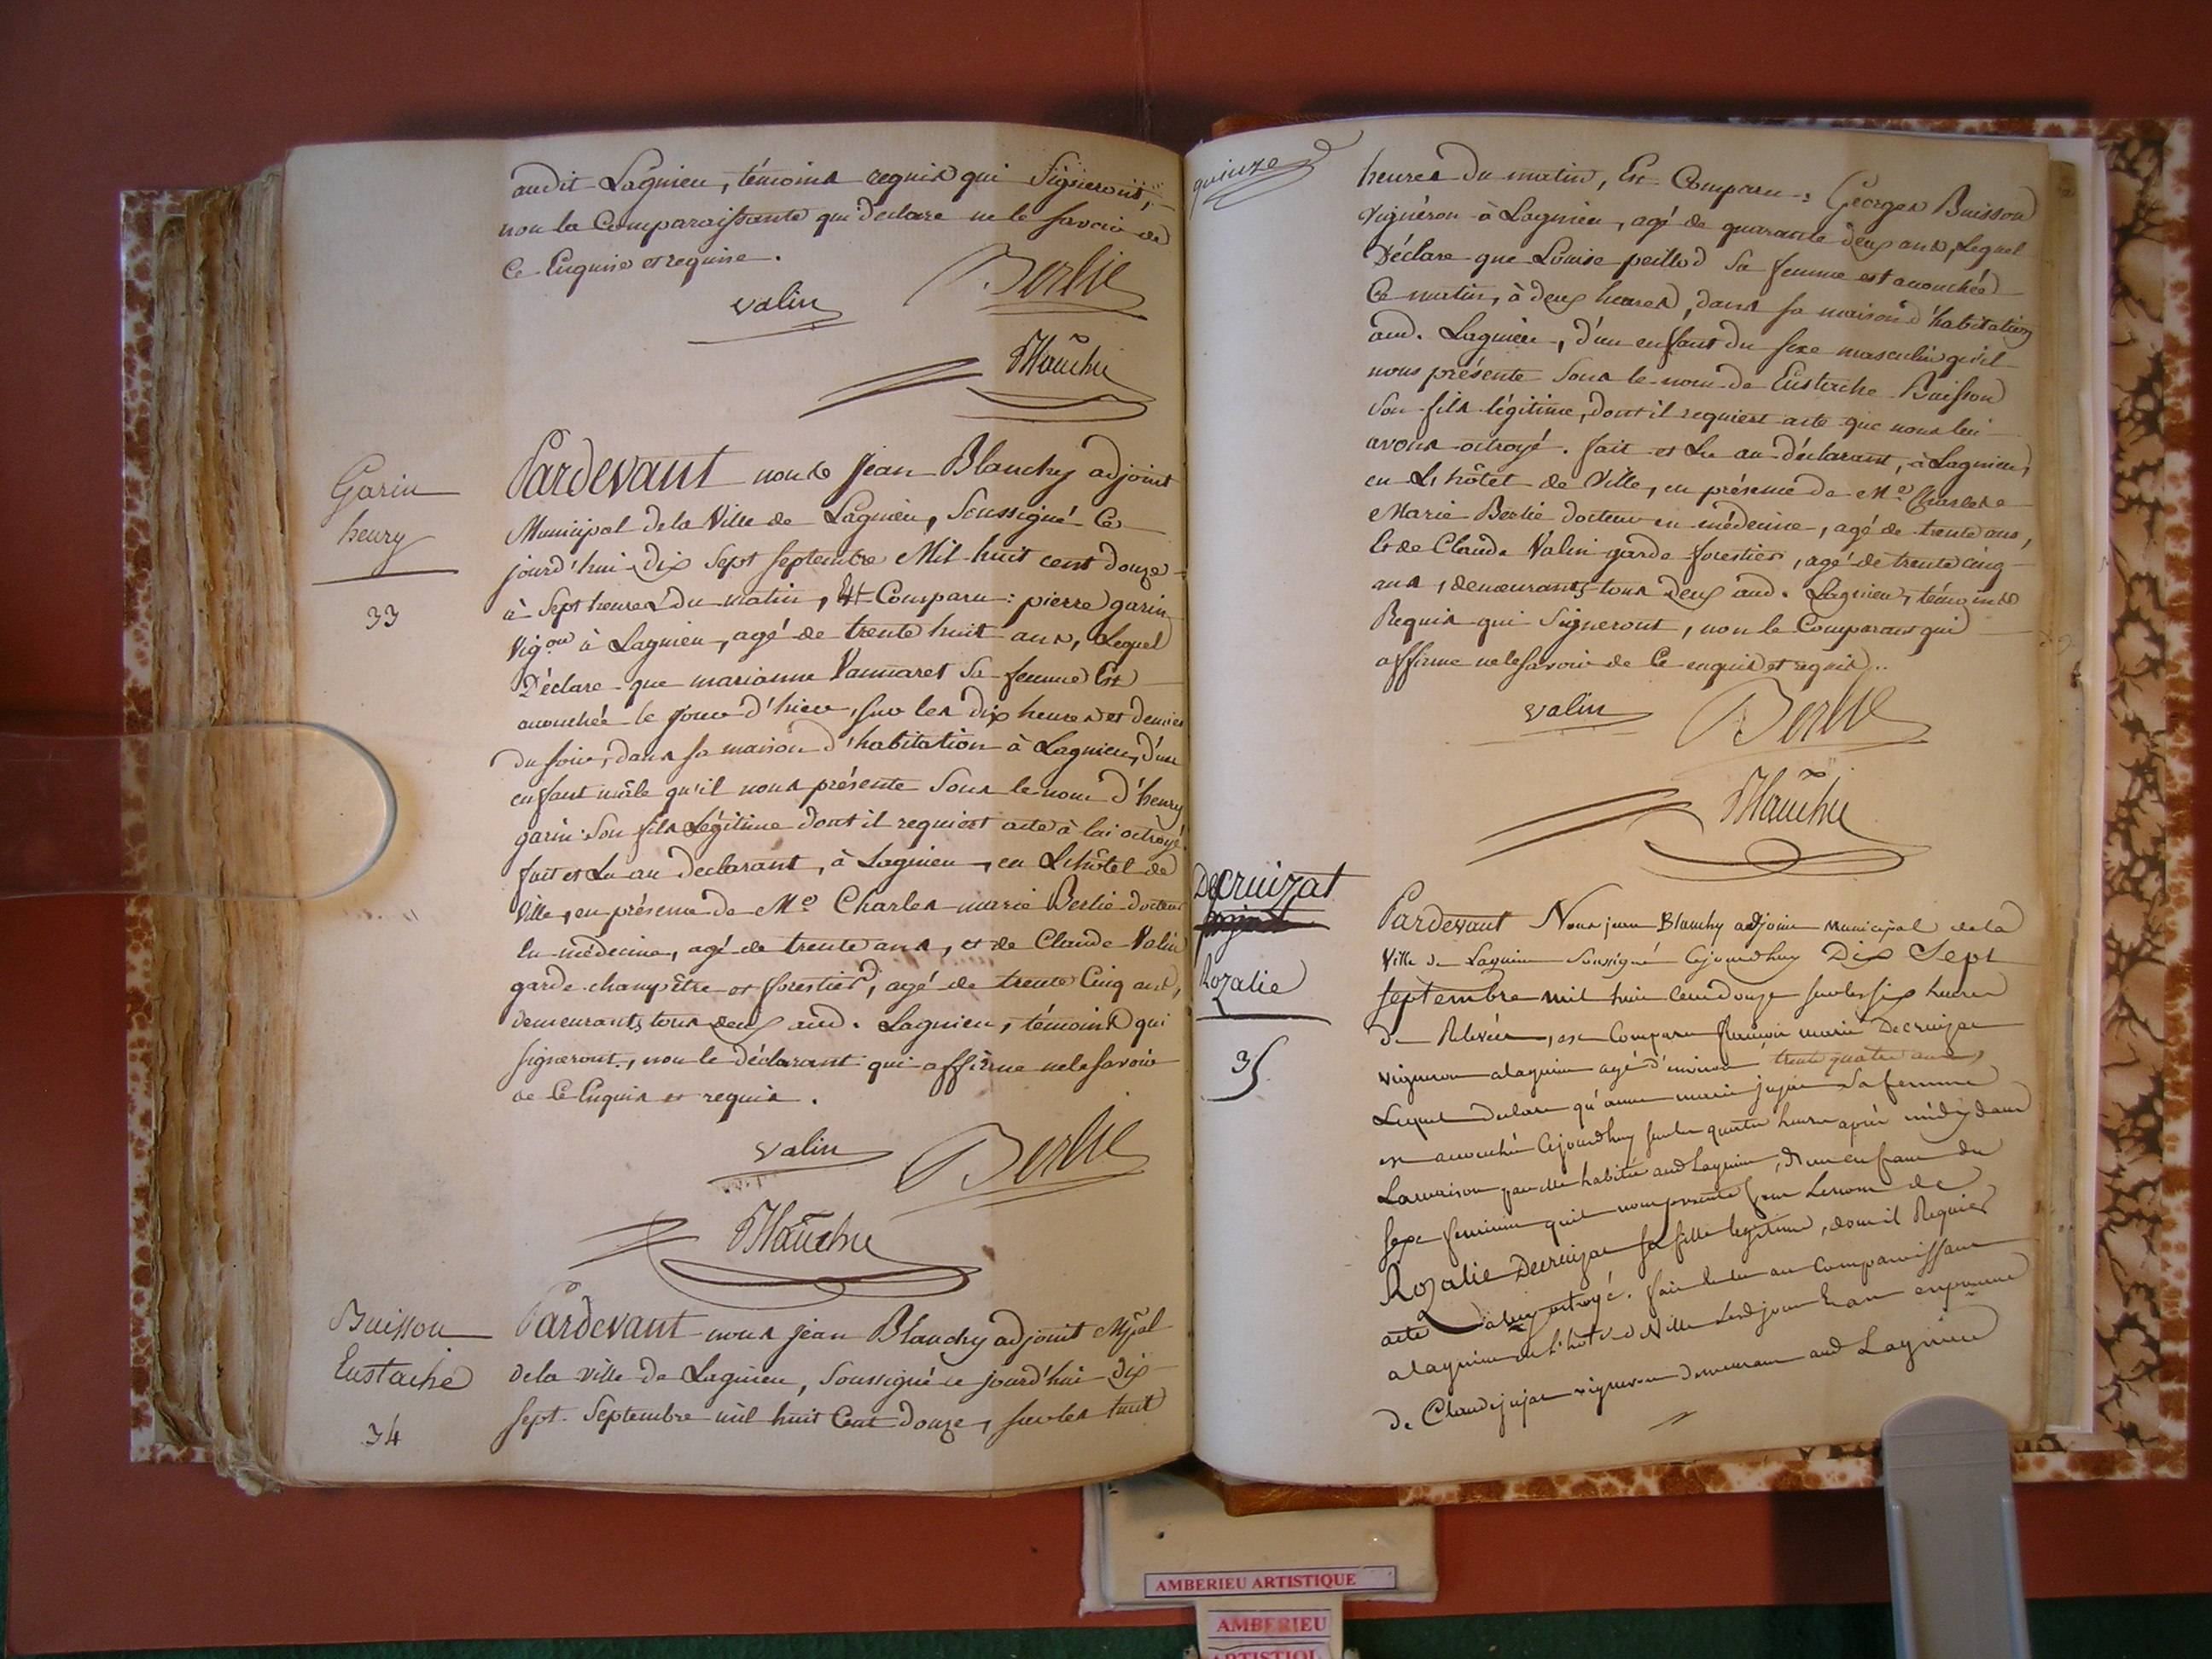 audit Lagnieu, témoins requis qui Signeront,
non la Comparaissante qui déclare ne le Savoir de
Ce Enquise et requise.
valin Berlie
Blanchy
Garin
henry
33
Pardevant nous Jean Blanchy adjoint
Municipal de la Ville de Lagnieu, Soussigné Ce
jourd'hui dix Sept Septembre Mil huit cent douze
à Sept heures du matin, Est Comparu : pierre garin
Vig.on à Lagnieu, agé de trente huit ans, Lequel
Déclare que marianne Vannaret Sa femme Est
acouchée le jour d'hier, sur les dix heures et demies
du soir, dans sa maison d'habitation à Lagnieu, d'un
enfant mâle qu'il nous présente Sous le nom d'henry
garin Son fils Légitime dont il requiert acte à lui octroyé.
fait et Lu au déclarant, à Lagnieu, en L'hôtel de
Ville, en présence de Me Charles marie Berlie docteur
En médecine, agé de trente ans, et de Claude Valin
garde champêtre et forestier, agé de trente Cinq ans,
demeurants tous deux aud. Lagnieu, témoins qui
signeront, non le déclarant qui affirme ne le savoir
de Ce Enquis et requis.
valin Berlie
Blanchy
Buisson
Eustache
34
Pardevant nous jean Blanchy adjoint Mpal
de la ville de Lagnieu, Soussigné ce jourd'hui dix
sept Septembre mil huit Cent douze, sur les huit
quinze
heures du matin, Est Comparu : Georges Buisson
vignéron à Lagnieu, agé de quarante deux ans, Lequel
Déclare que Louise peillod Sa femme est acouchée
Ce matin, à deux heures, dans sa maison d'habitation
aud. Lagnieu, d'un enfant du sexe masculin qu'il
nous présente Sous le nom de Eustache Buisson
Son fils légitime, dont il requiert acte que nous lui
avons octroyé. fait et Lu au déclarant, à Lagnieu,
en L'hôtel de Ville, en présence de Me Charles
Marie Berlie docteur en médecine, agé de trente ans,
Et de Claude Valin garde forestier, agé de trente cinq
ans, demeurants tous deux aud. Lagnieu, témoins
Requis qui Signeront, non le Comparant qui
affirme ne le savoir de Ce enquis et requis..
valin Berlie
Blanchy
Decruizat
Rozalie
35
Pardevant Nous jean Blanchy adjoint Municipal de la
Ville de Lagnieu Soussigné Cejourdhuy Dix Sept
septembre mil huit cent douze sur les six heures
de Relevée, est Comparu françois marie Decruizat
vigneron a lagnieu agé d'environ trente quatre ans,
Lequel declare qu'anne marie jujat Sa femme
est acouchée Cejourdhuy sur les quatre heures après midy dans
La maison par elle habitée aud Lagnieu, d'un enfant du
sexe feminin quil nous presente sous Lenom de
Rozalie Decruizat sa fille legitime, dont il Requier
acte a luy octroyé. fait et lu au Comparaissant
a lagnieu en l'hotel de Ville Lesd jour et an en presence
de Claude jujat vigneron demeurant aud Lagnieu
AMBERIEU ARTISTIQUE
AMBERIEU
ARTISTIQ